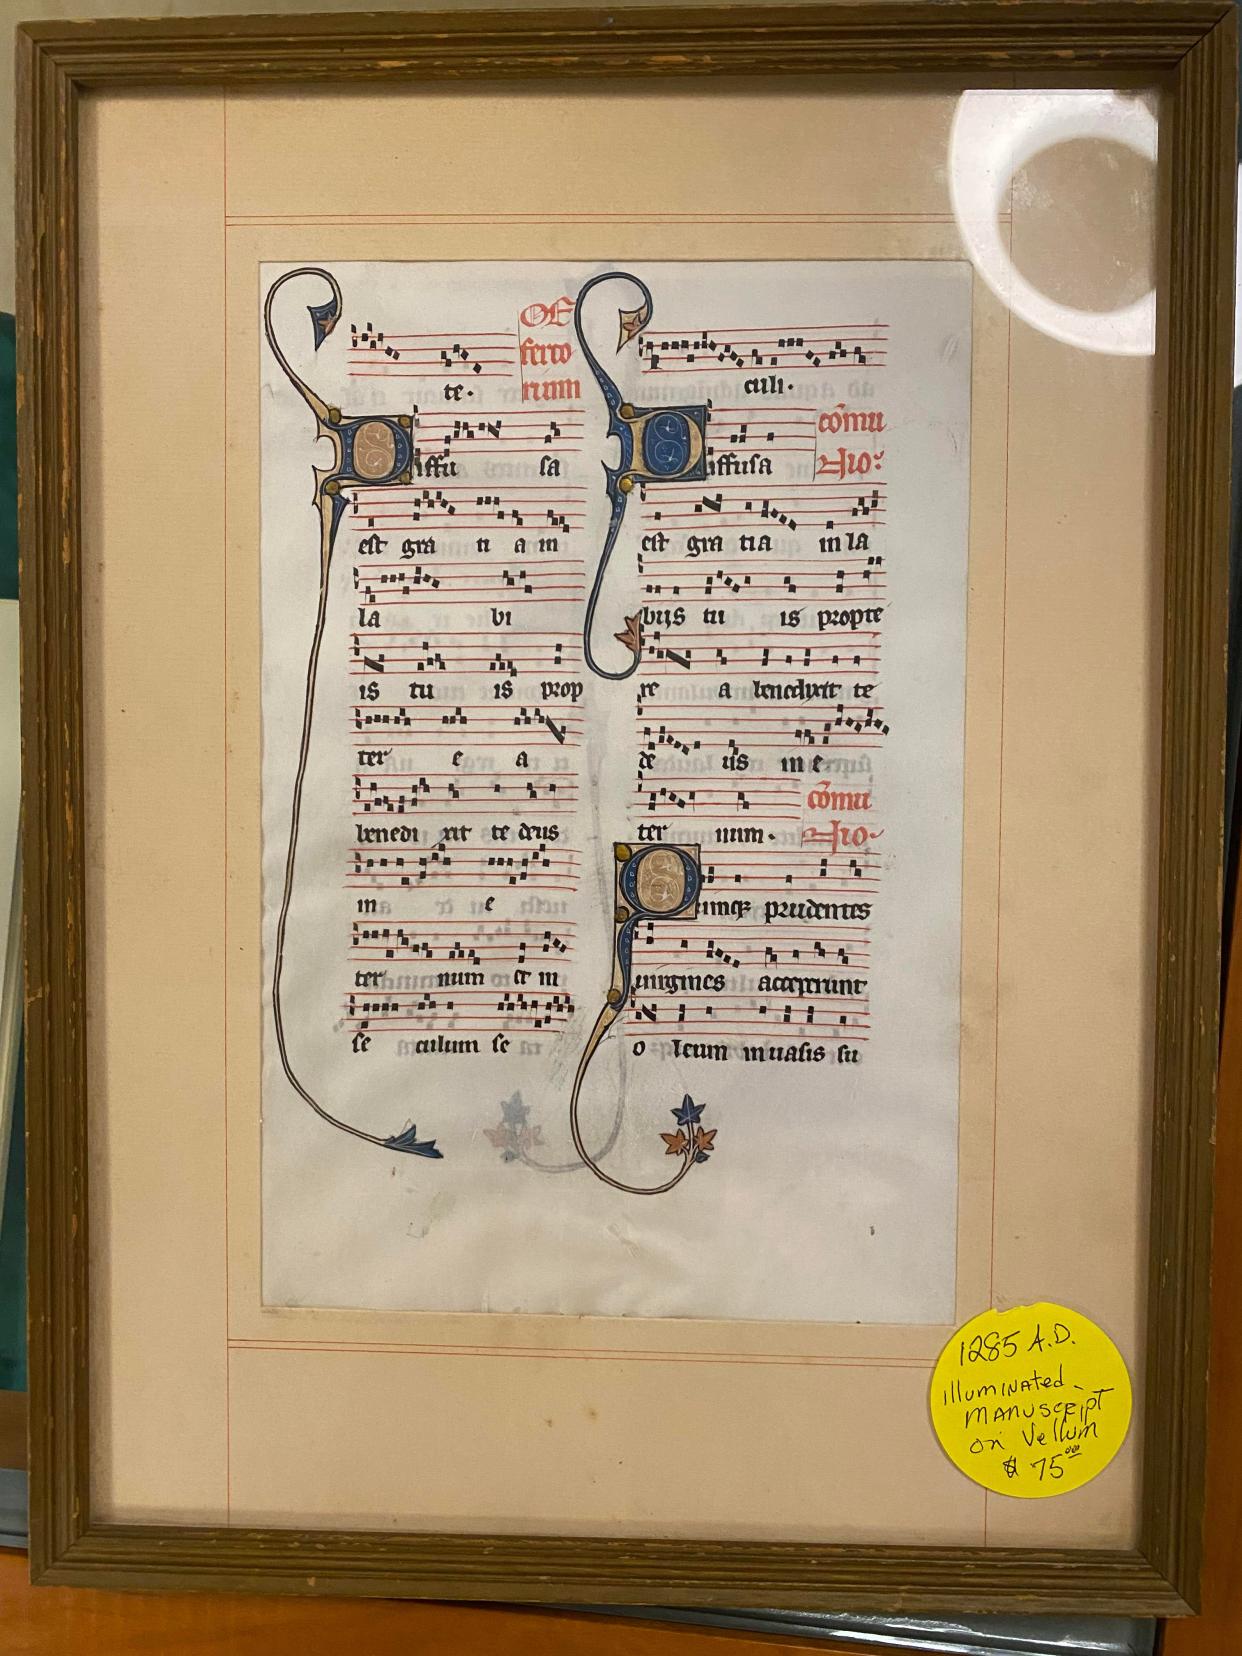 te.
Offerto
rium
Diffu sa
est gra ti a in
la bi
is tu is prop
ter e a
benedi xit te deus
in e
ter num et in
se culum se
culi.
cōmu
nio.
Diffusa
est gra tia in la
bijs tu is propte
re a benedixit te
de us in e
cōmu
ter num.
nio.
Quinqꝫ prudentes
uirgines acceperunt
o leum in uasis su
1285 A.D.
illuminated
manuscript
on Vellum
$75.00